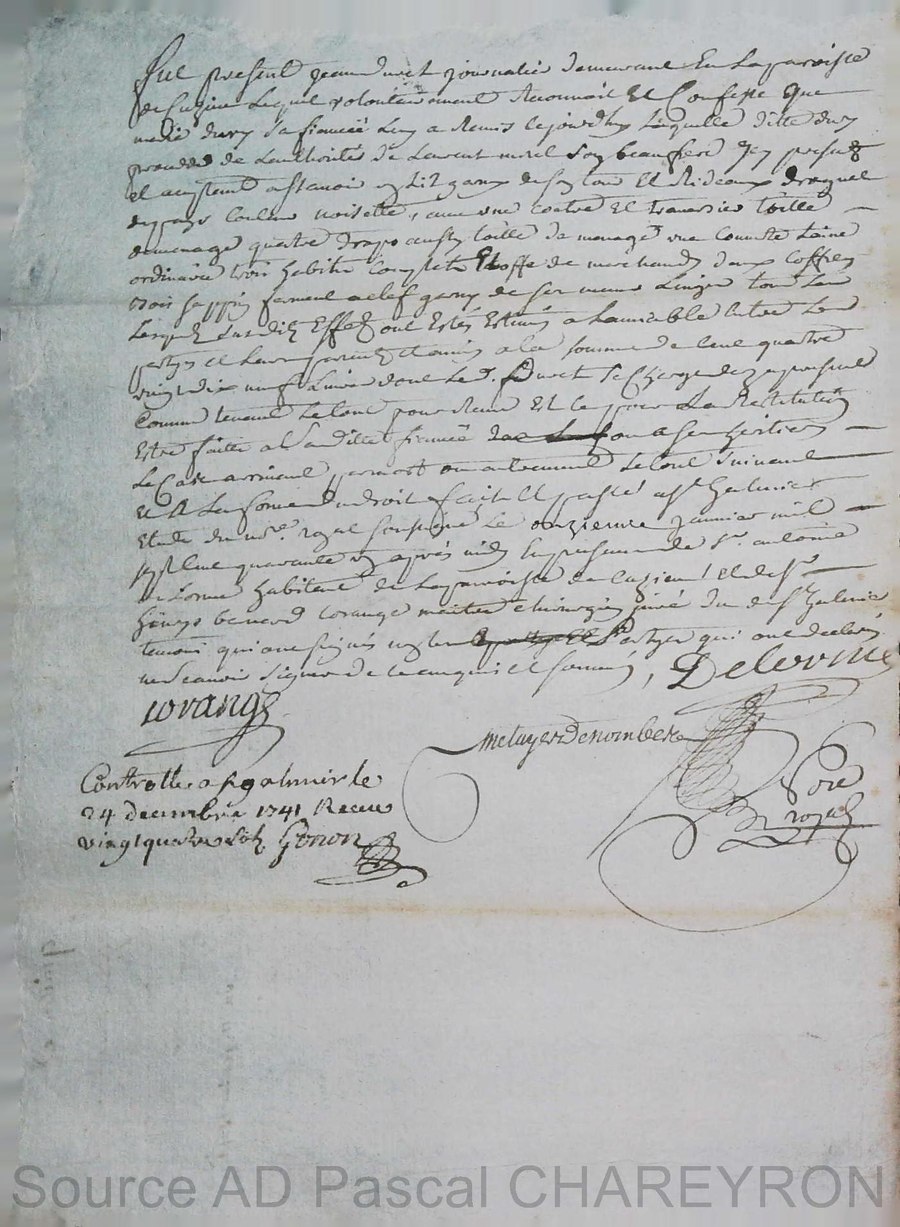 fut present jean duret journalier demeurant En La paroisse
de Cuzieu Lequel volontairement Reconnait Et Confesse Que
marie dury sa fiancéé Luy a Remis cejourdhuy Laquelle ditte dury
procedde de Lauthorité de Laurent morel Son beaufrere Icy present
et acceptant a scavoir un Lit garny de son tour Et Rideaux draguet
depays couleur noisette, avec une coutre Et traversier toille
demenage quatre draps aussy toille de menage une couverte Laine
ordinaire trois habits complets Etoffe de marchands deux coffres
bois sappin fermant a clef garny de ses menus Linges tous Les
Lesquels susdits Effets ont Estés Estimés a Lamiable Entre Les
partyes et Leurs parents et amis a la somme de cent quatre
vingt dix neuf Livres dont Le d. Duret se charge des a present
comme tenant Le tout pour Remis Et ce pour La Restitution
Estre faitte a Sa ditte fiancéé ou a ses hertiers
Le Cas arrivant permort ou autrement Le tout Suivant
Et A La forme du droit fait et passé a st Galmier
Etude du no.re royal soussigné Le onzieme janvier mil
sept cent quarante un après midy En presence de Sr. antoine
delorme habitant de La paroisse de Cuzieu Et de Sr.
henry benard Lorange maitre chirurgien juré du d. St Galmier
temoins qui ont signés non Les partyes qui ont declaré
ne Scavoir signer de ce enquis et sommés, Delorme
Lorange
metayer Denombere
No.re
royal
Controllé a st galmier le
24 decembre 1741 Receu
vingt quatre sols Gonon
Source AD Pascal CHAREYRON